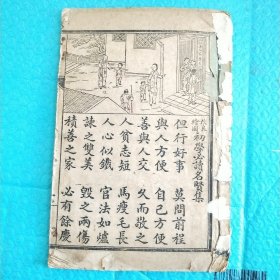 繪圖初學必讀名賢集
但行好事 莫問前程
與人方便 自己方便
善與人交 久而敬之
人貧志短 馬瘦毛長
人心似鐵 官法如爐
諫之雙美 毀之兩傷
積善之家 必有餘慶